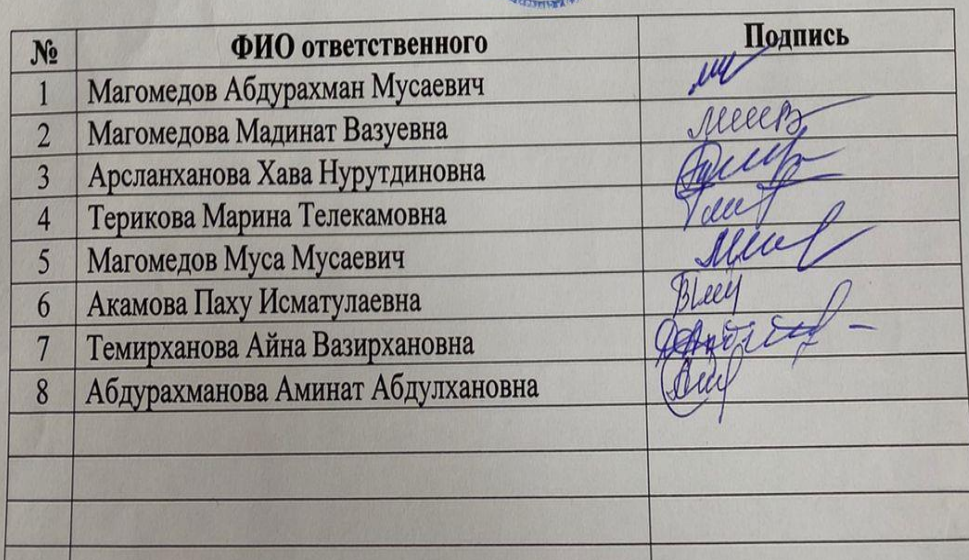 № ФИО ответственного Подпись
1 Магомедов Абдурахман Мусаевич
2 Магомедова Мадинат Вазуевна
3 Арсланханова Хава Нурутдиновна
4 Терикова Марина Телекамовна
5 Магомедов Муса Мусаевич
6 Акамова Паху Исматулаевна
7 Темирханова Айна Вазирхановна
8 Абдурахманова Аминат Абдулхановна